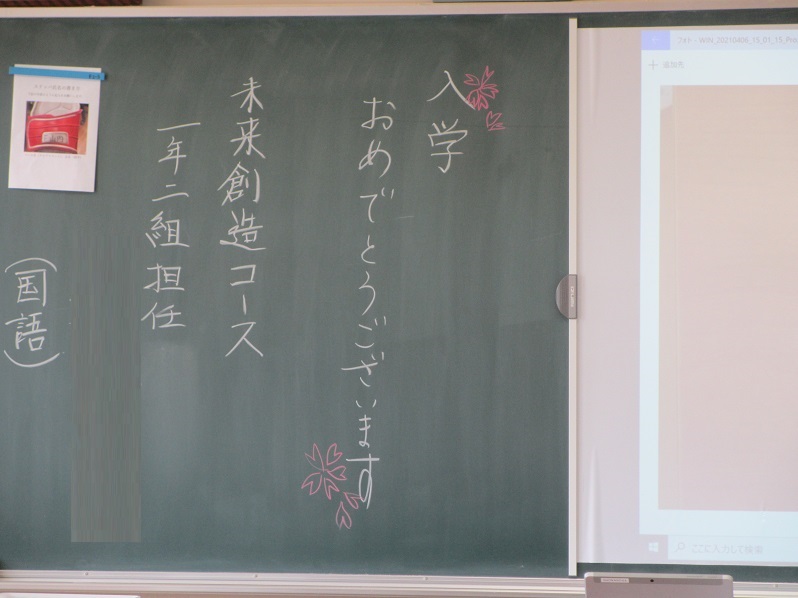 入学
おめでとうございます
未来創造コース
一年二組担任
(国語)
フォト - WIN_20210406_15_01_15_Pro
追加先
ここに入力して検索